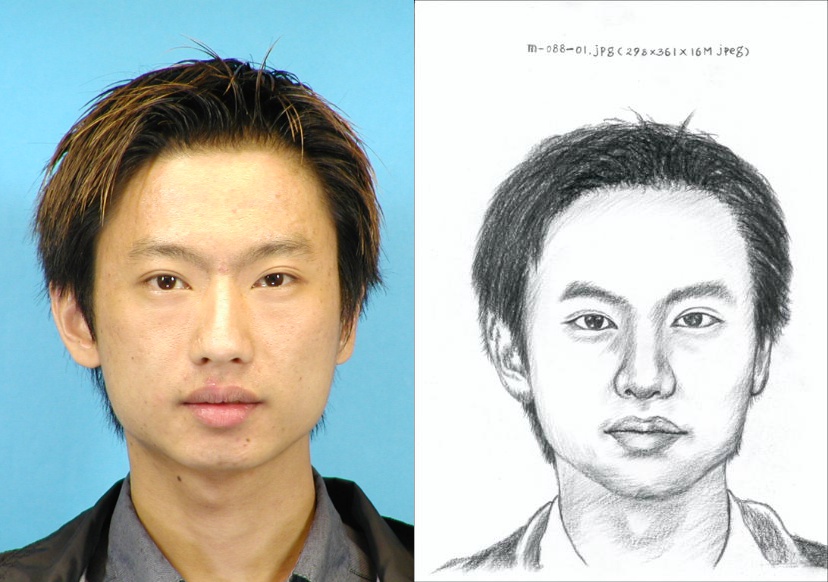 m-088-01.jpg(298×361×16M jpeg)